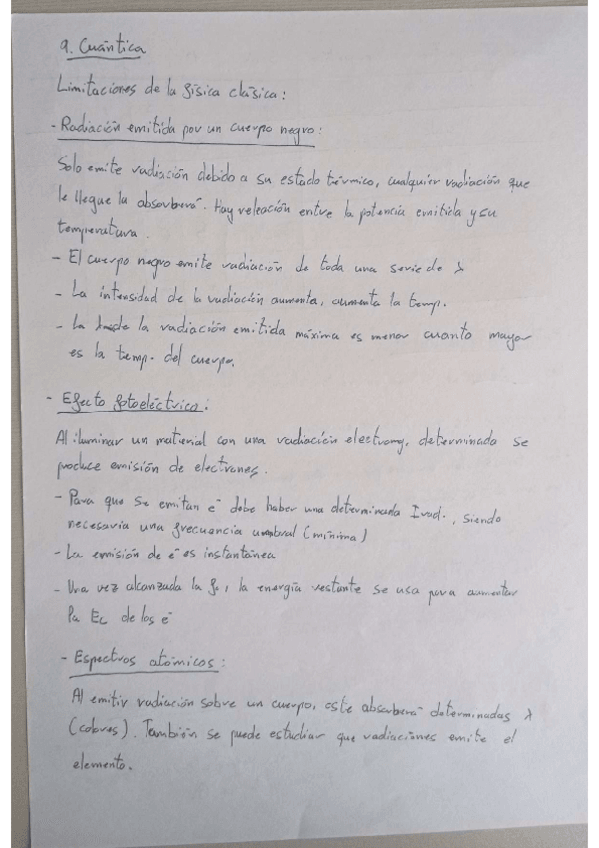 9. Cuántica
Limitaciones de la física clásica:
- Radiación emitida por un cuerpo negro:
Solo emite radiación debido a su estado térmico, cualquier radiación que
le llegue la absorberá. Hay relación entre la potencia emitida y su
temperatura.
- El cuerpo negro emite radiación de toda una serie de λ
- La intensidad de la radiación aumenta, aumenta la temp.
- La λ de la radiación emitida máxima es menor cuanto mayor
es la temp. del cuerpo.
- Efecto fotoeléctrico:
Al iluminar un material con una radiación electromg. determinada se
produce emisión de electrones.
- Para que se emitan e⁻ debe haber una determinada Irad., siendo
necesaria una frecuencia umbral (mínima)
- La emisión de e⁻ es instantánea
- Una vez alcanzada la f₀, la energía restante se usa para aumentar
la Ec de los e⁻
- Espectros atómicos:
Al emitir radiación sobre un cuerpo, este absorberá determinadas λ
(colores). También se puede estudiar que radiaciones emite el
elemento.